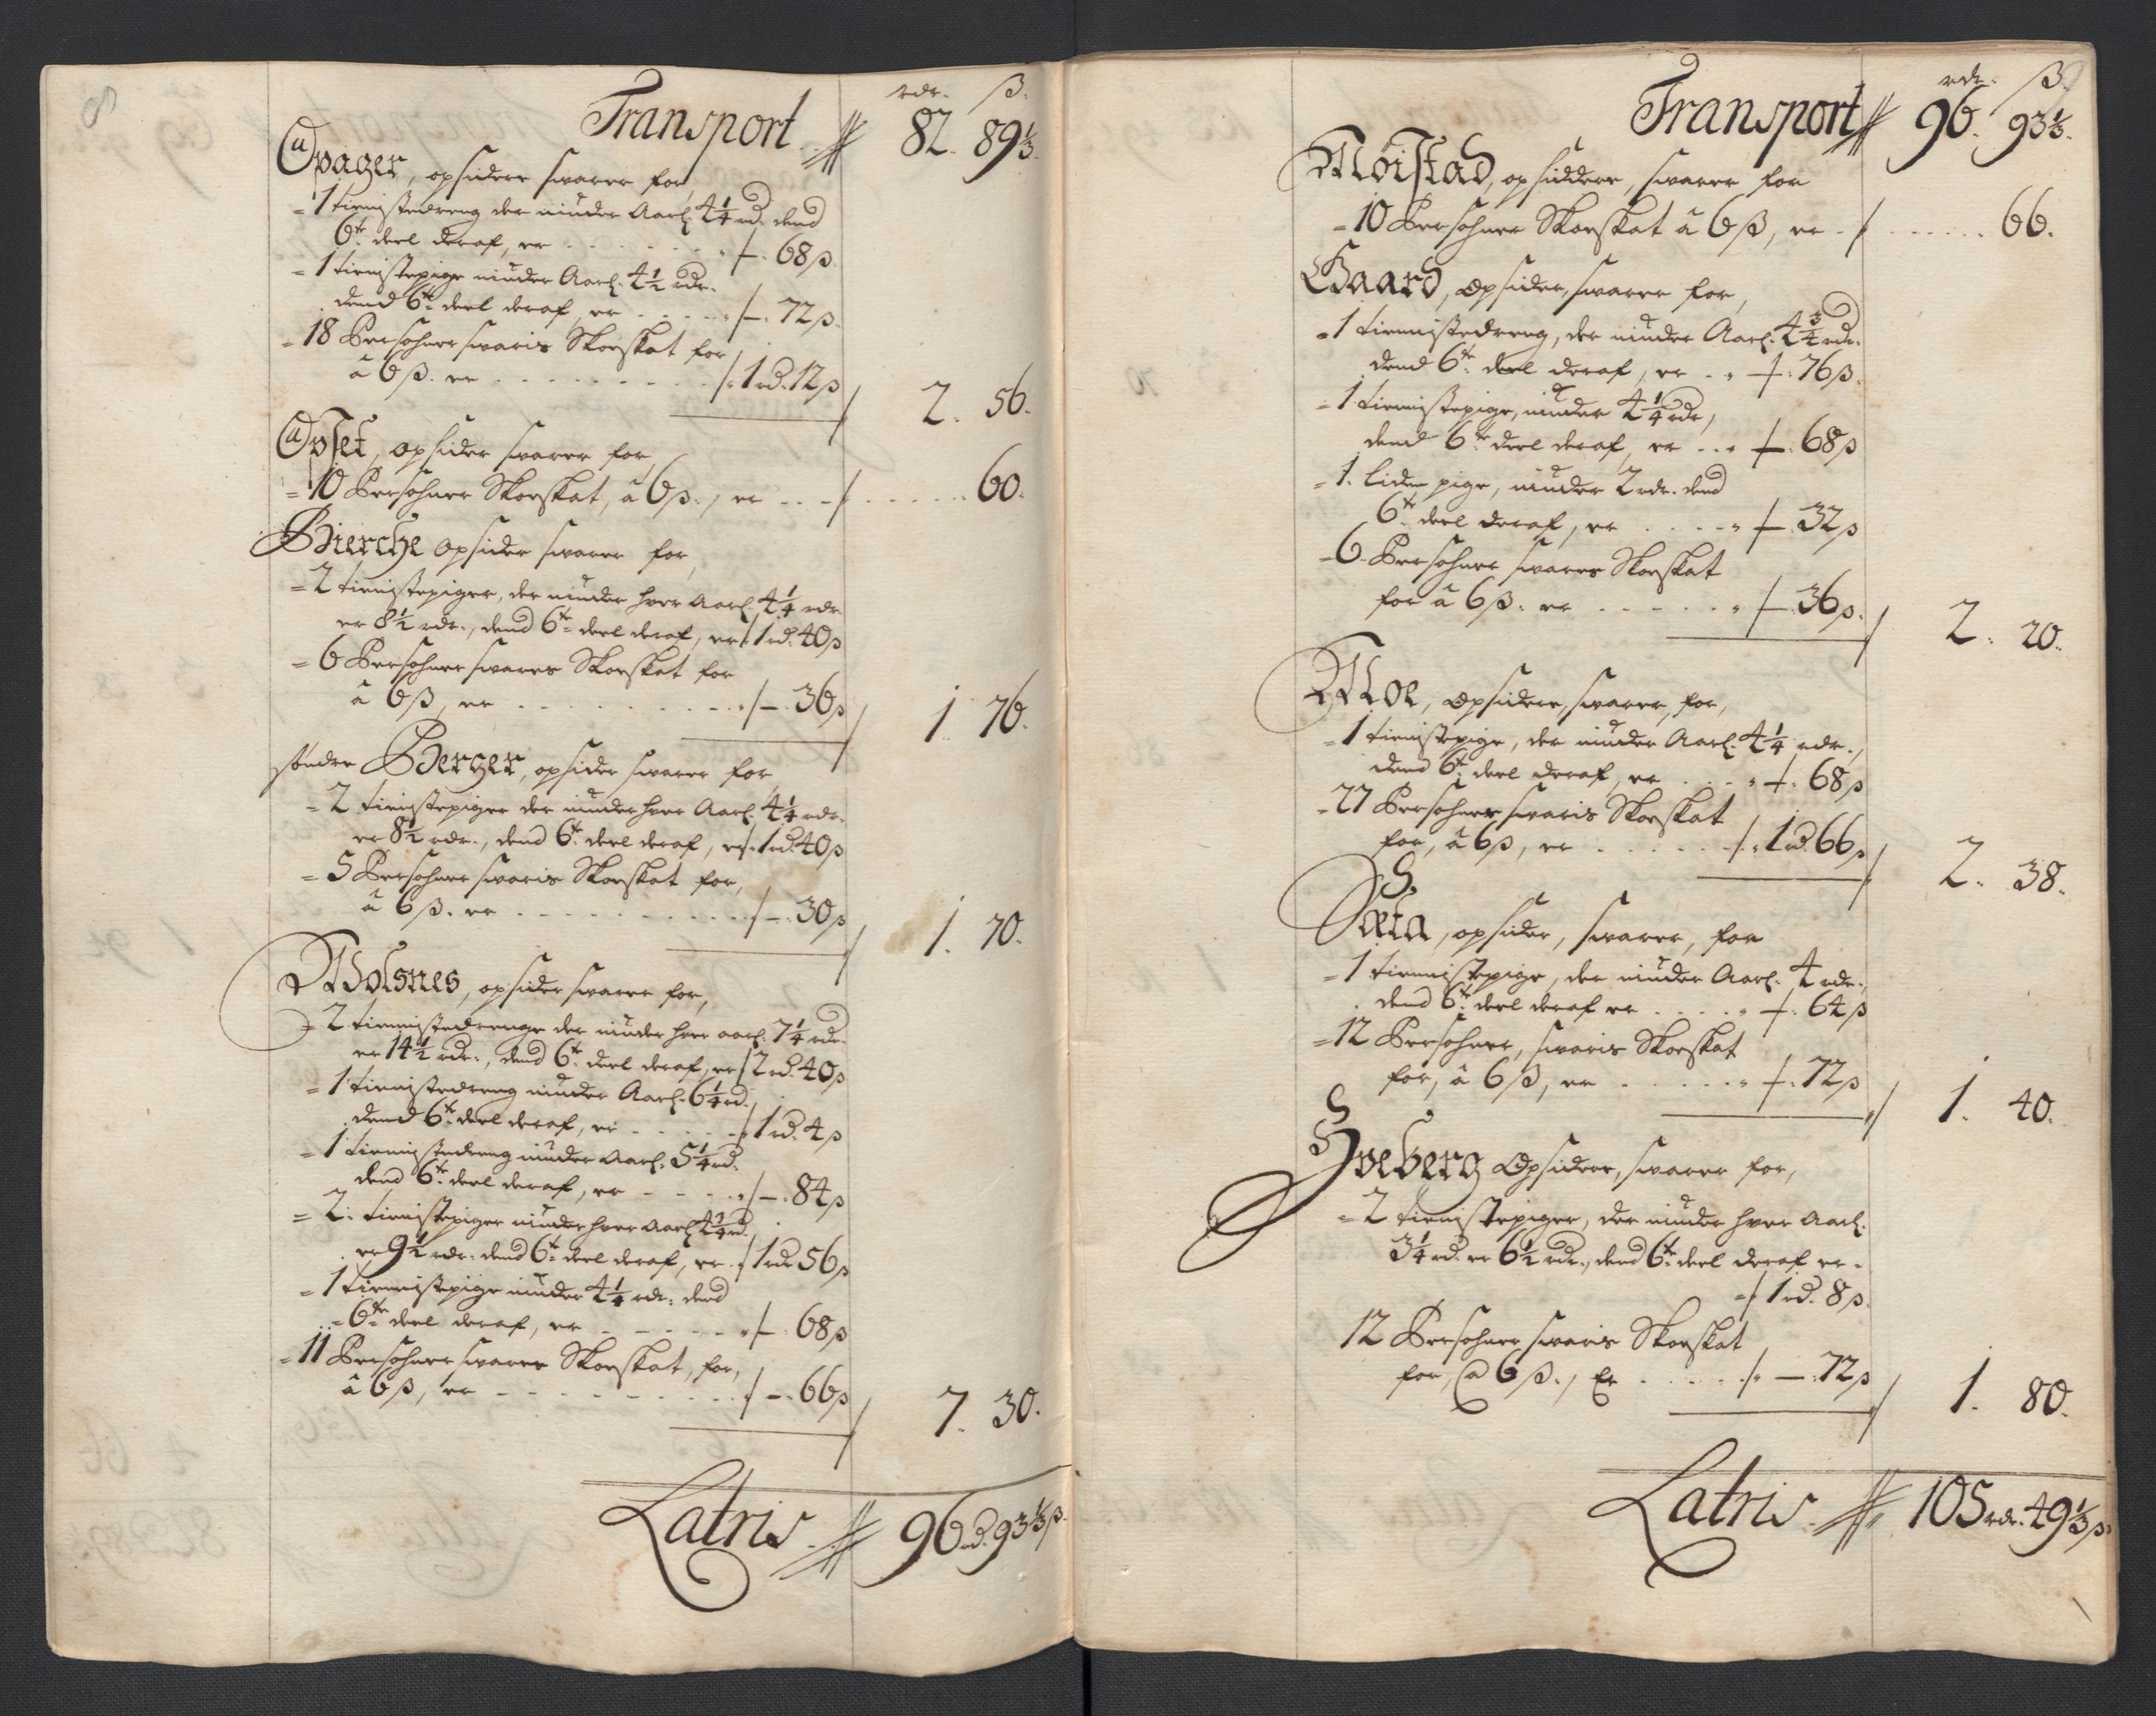 rdr. ß.
Transport // 82. 89⅓.
Opager, opsidere svarer for,
- 1 tienistedreng der niuder Aarl. 4¼ rd. dend
6te deel deraf, er . . . . . . . /—. 68 ß.
- 1 tienistepige niuder Aarl. 4½ rdr.
dend 6te deel deraf, er . . . . . /—. 72 ß.
- 18 Persohner svaris Skoeskat for
â 6 ß. er . . . . . . . . . /. 1 rd. 12 ß / 2. 56.
Opset, opsider svarer for,
- 10 Persohner Skoeskat, â 6 ß., er . . . / . . . . . . 60.
Bierche opsider svarer for,
- 2 tienistepiger, der niuder hver Aarl. 4¼ rdr.
er 8½ rdr., dend 6te deel deraf, er / 1 rd. 40 ß
- 6 Persohner svares Skoeskat for
â 6 ß, er . . . . . . . . . . /—. 36 ß / 1. 76.
søndre Berger, opsider svarer for
- 2 tienistepiger der niuder hver Aarl. 4¼ rdr.
er 8½ rdr., dend 6te deel deraf, er / 1 rd. 40 ß
- 5 Persohner svaris Skoeskat for,
â 6 ß. er . . . . . . . . . . . /—. 30 ß / 1. 70.
Wolsnes, opsider svarer for,
- 2 tiennistedrenge der niuder hver aarl. 7¼ rdr.
er 14½ rdr., dend 6te deel deraf, er / 2 rd. 40 ß
- 1 tienistedreng niuder Aarl. 6¼ rd.,
dend 6te deel deraf, er . . . . . / 1 rd. 4 ß
- 1 tiennistedreng niuder Aarl. 5¼ rd.
dend 6te deel deraf, er - - - . . /—. 84 ß
- 2. tienistepiger niuder hver Aarl 4¾ rd,
er 9½ rdr. dend 6te deel deraf, er . / 1 rdr 56 ß
- 1 tiennistepige niuder 4¼ rdr. dend
6te deel deraf, er . . . . . . . /—. 68 ß
- 11 Persohner svarer Skoeskat, for,
â 6 ß, er - - - . . . . . . . . /—. 66 ß / 7. 30.
Latris. // 96 rd. 93⅓ ß.
rdr. ß.
Transport // 96. 93⅓.
Möistad, opsiddere, svarer for
- 10 Persohner Skoeskat â 6 ß, er . / . . . . . . 66.
Gaard, opsider, svarer for,
- 1 tiennistedreng, der niuder Aarl. 4¾ rdr.
dend 6te deel deraf, er . . /—. 76 ß.
- 1 tiennistepige, niuder 4¼ rdr,
dend 6te deel deraf, er . . . /—. 68 ß
- 1. liden pige, niuder 2 rdr. dend
6te deel deraf, er . . . . . /—. 32 ß
- 6. Persohner svares Skoeskat
for â 6 ß. er . . . . . . . /—. 36 ß. / 2. 20.
Moe, opsidere, svarer, for,
- 1 tienistepige, der niuder Aarl. 4¼ rdr.,
dend 6te deel deraf, er . . . . /—. 68 ß
- 27 Persohner svaris Skoeskat
for, â 6 ß, er . . . . . . . /. 1 rd. 66 ß / 2. 38.
Sæta, opsider, svarer, for
- 1 tiennistepige, der niuder Aarl. 4 rdr.,
dend 6te deel deraf er . . . . . /—. 64 ß
- 12 Persohner, svaris Skoeskat
for, â 6 ß, er . . . . . . /—. 72 ß / 1. 40.
Hveberg Opsidere, svarer for,
- 2 tienistepiger, der niuder hver Aarl.
3¼ rd. er 6½ rdr., dend 6te deel deraf er -
/ 1 rd. 8 ß.
12 Persohner svaris Skoeskat
for, â 6 ß., Er . . . . . /. —. 72 ß / 1. 80.
Latris. // 105 rdr. 49⅓ ß.